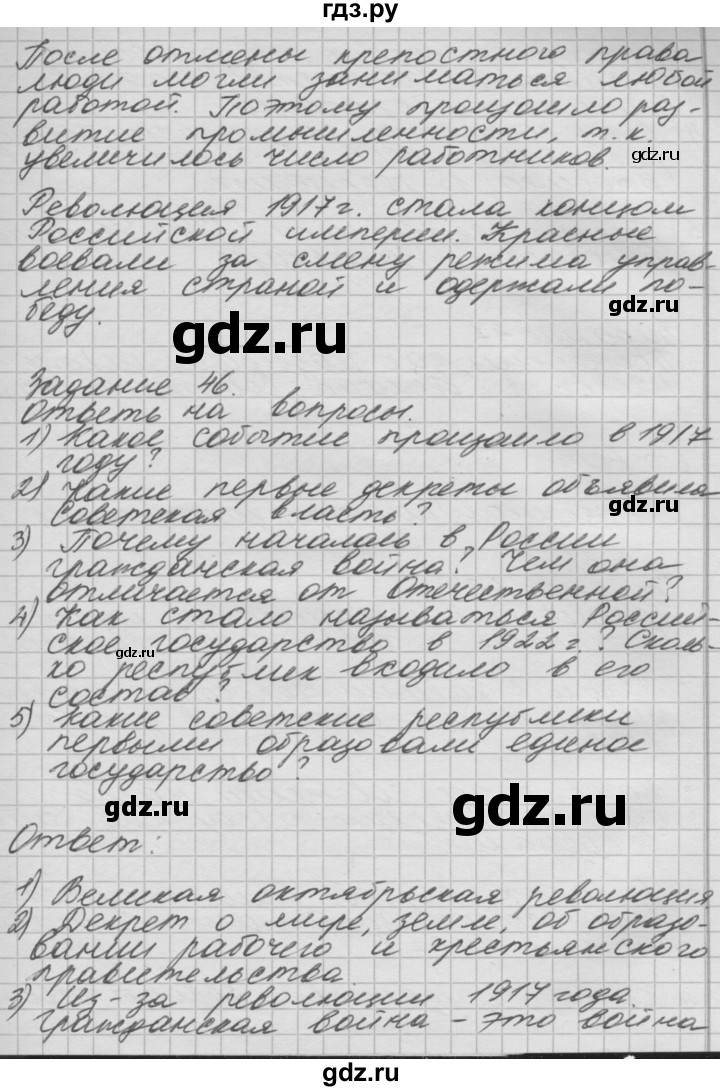 гдз.ру
После отмены крепостного права
люди могли заниматься любой
работой. Поэтому произошло раз-
витие промышленности, т.к.
увеличилось число работников.
gdz.ru
Революция 1917г. стала концом
Российской империи. Красные
воевали за смену режима управ-
ления страной и одержали по-
беду.
gdz.ru
gdz.ru
Задание 46.
Ответь на вопросы.
1) Какое событие произошло в 1917
году?
2) Какие первые декреты объявила
советская власть?
gdz.ru
3) Почему началась в России
гражданская война? Чем она
отличается от Отечественной?
4) Как стало называться Россий-
ское государство в 1922 г.? Сколь-
ко республик входило в его
состав?
gdz.ru
5) Какие советские республики
первыми образовали единое
государство?
gdz.ru
gdz.ru
Ответ:
1) Великая октябрьская революция
2) Декрет о мире, земле, об образо-
вании рабочего и крестьянского
правительства.
3) Из-за революции 1917 года.
Гражданская война - это война
gdz.ru
gdz.ru